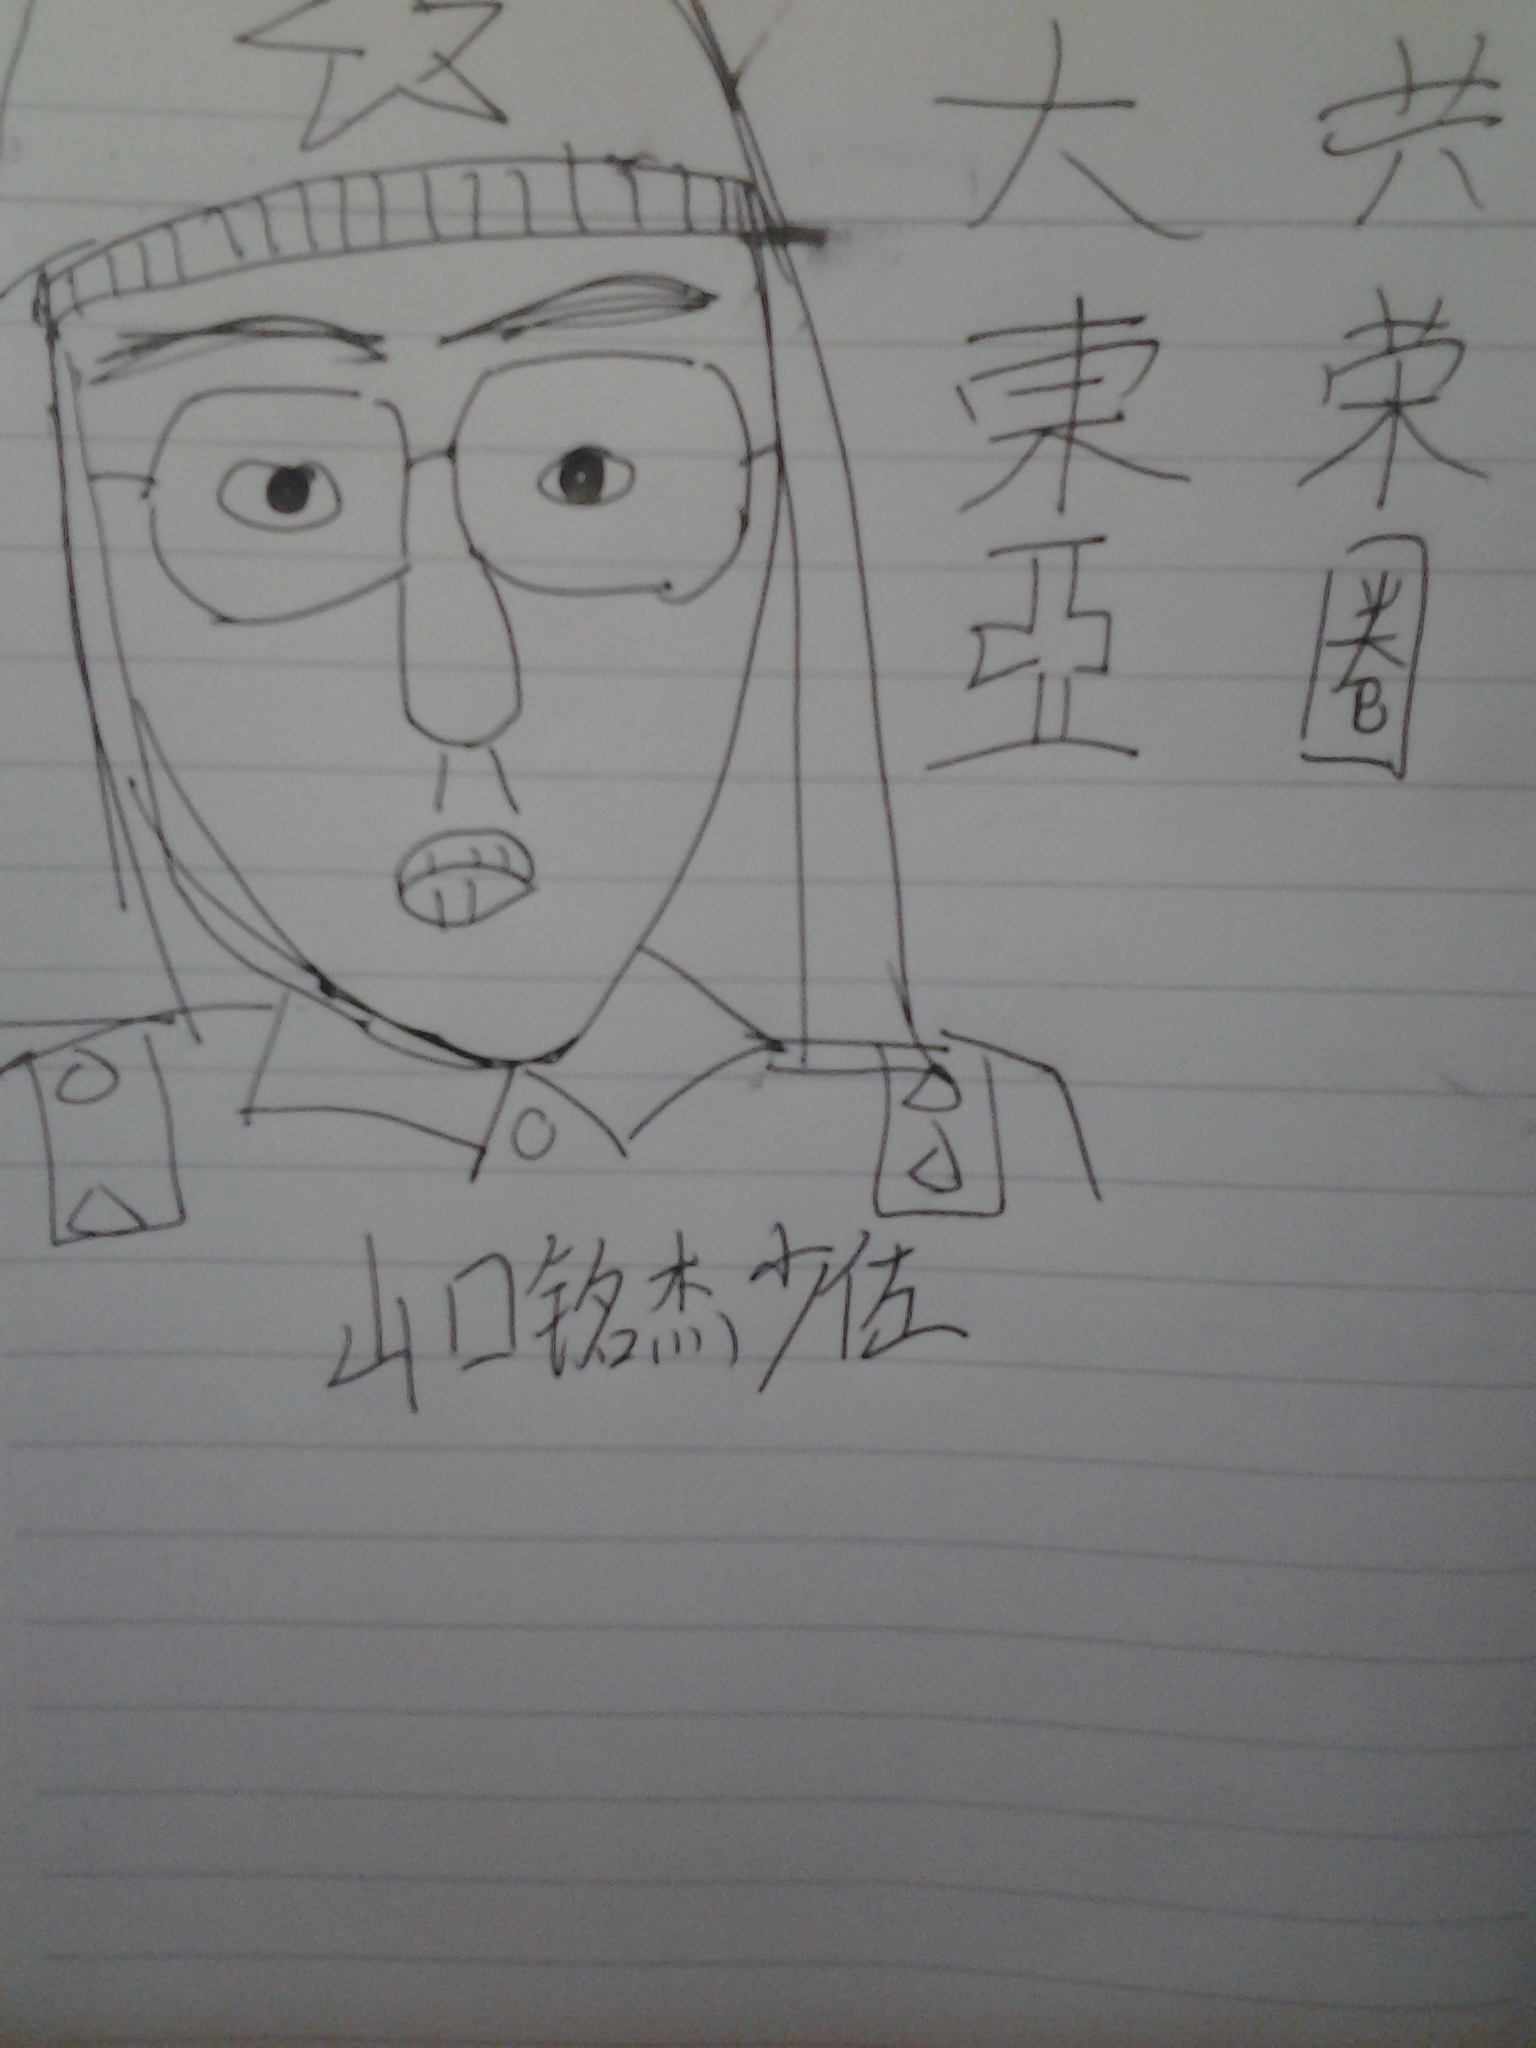 大東亞
共荣圈
山口铭杰少佐